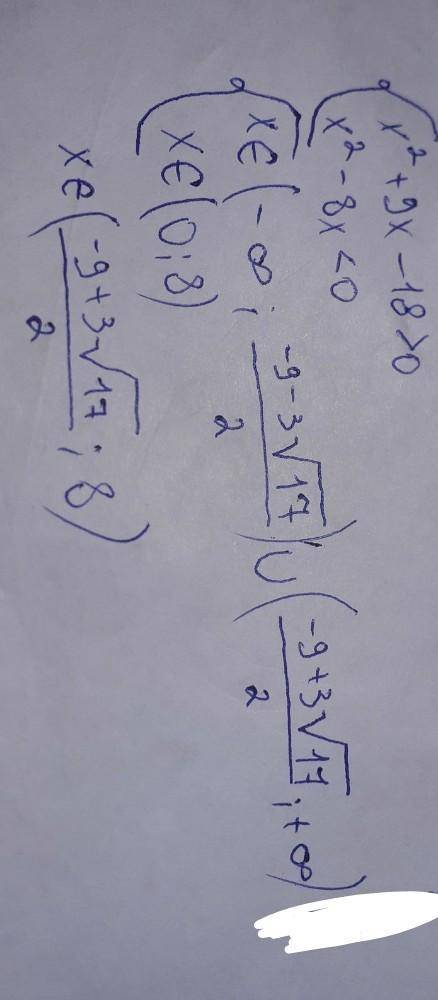 { x² + 9x - 18 > 0
{ x² - 8x < 0
{ x ∈ (-∞; (-9-3√17)/2) ∪ ((-9+3√17)/2; +∞)
{ x ∈ (0; 8)
x ∈ ((-9+3√17)/2; 8)